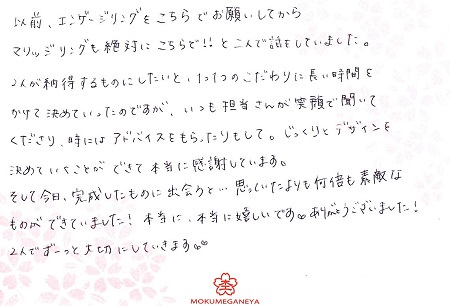 以前、エンゲージリングをこちらでお願いしてから
マリッジリングも絶対にこちらで!!と二人で話をしていました。
2人が納得するものにしたいと、1つ1つのこだわりに長い時間を
かけて決めていったのですが、いつも担当さんが笑顔で聞いて
くださり、時にはアドバイスをもらったりもして。じっくりとデザインを
決めていくことができて本当に感謝しています。
そして今日、完成したものに出会うと…思っていたよりも何倍も素敵な
ものができていました!本当に、本当に嬉しいです。ありがとうございました!
2人でずーっと大切にしていきます。
MOKUMEGANEYA